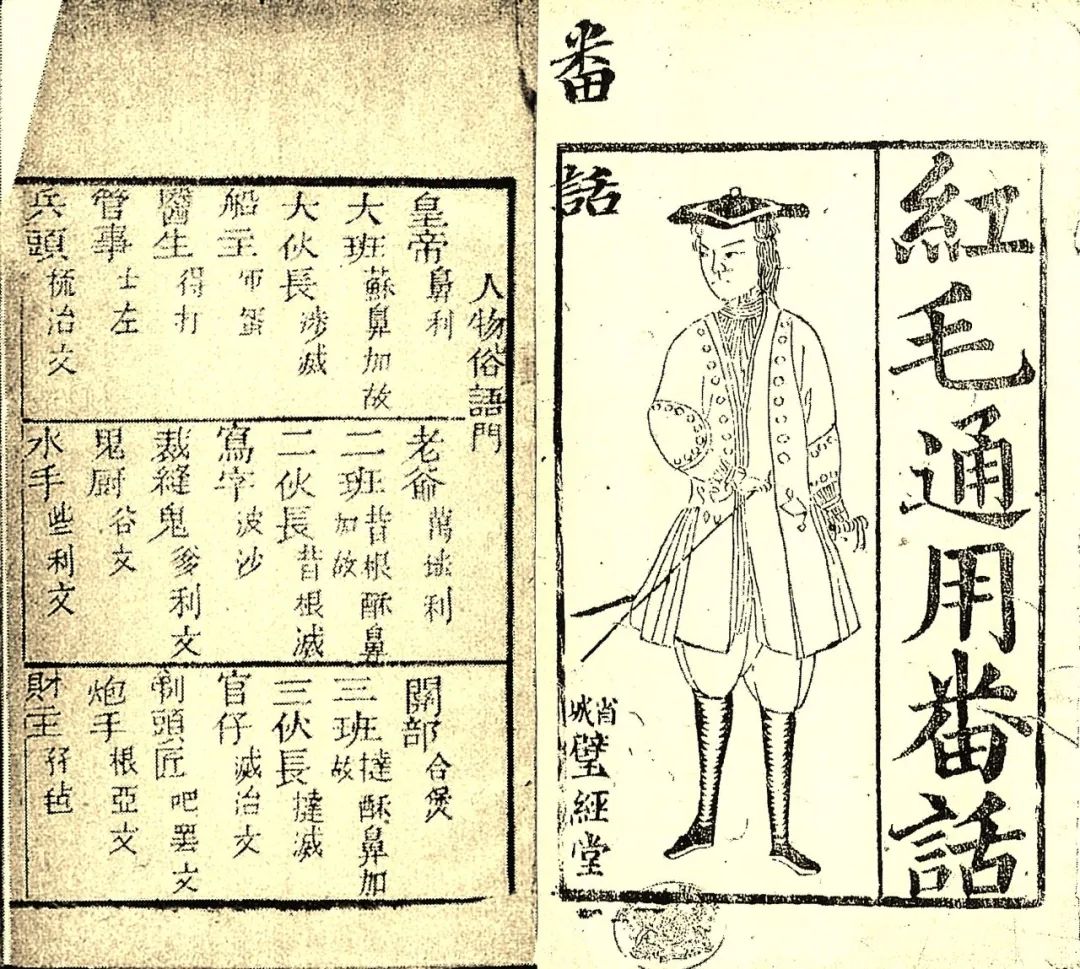 番話
紅毛通用番話
省城璧經堂
人物俗語門
皇帝 鼻利
大班 蘇鼻加故
大伙長 涉滅
船主 甲蛋
醫生 得打
管事 士左
兵頭 梳治文
老爺 萬利
二班 昔根酥鼻加故
二伙長 昔根滅
寫字 波沙
裁縫鬼 爹利文
鬼厨 谷文
水手 些利文
關部 合煲
三班 撻酥鼻加故
三伙長 撻滅
官仔 滅治文
剃頭匠 吧罷文
炮手 根亞文
財主 孖毡